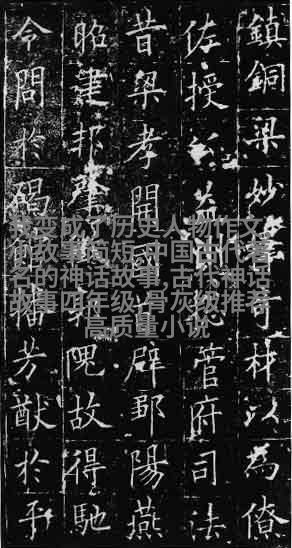 鎮銅梁妙奇材以為僚
佐授益州總管府司法
昔梁孝開國首辟鄒陽燕
昭建邦肇郭隗故得馳
令問於碣播芳猷於平
我变成了历史人物作文
故事简短-中国古代著
名的神话故事,古代神话
故事四年级-骨灰级推荐
高质量小说